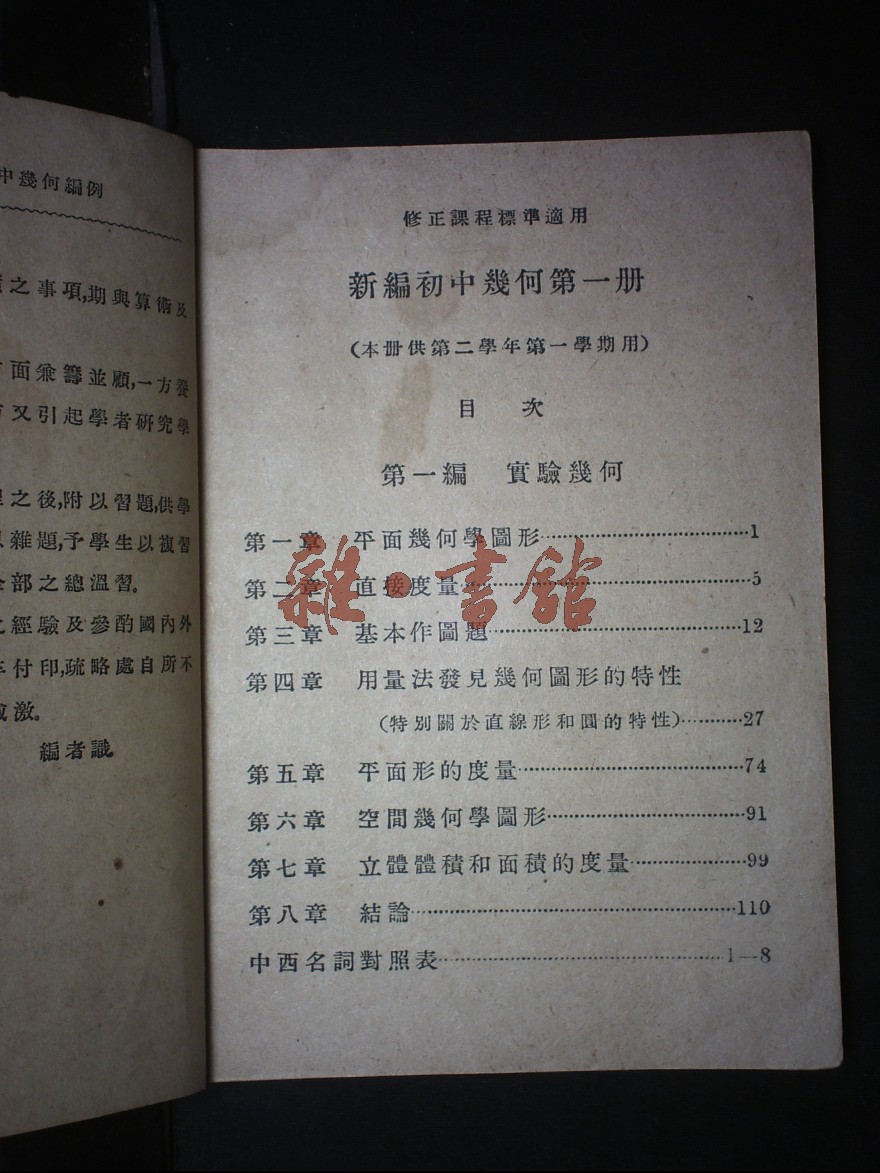 中幾何編例
之事項,期與算術及
面兼籌並顧,一方養
又引起學者研究學
之後,附以習題,供學
雜題,予學生以複習
部之總溫習。
經驗及參酌國內外
付印,疏略處自所不
激。
編者識
修正課程標準適用
新編初中幾何第一册
(本册供第二學年第一學期用)
目 次
第一編 實驗幾何
第一章 平面幾何學圖形…………………………1
第二章 直接度量…………………………5
第三章 基本作圖題…………………………12
第四章 用量法發見幾何圖形的特性
(特別關於直線形和圓的特性)…………27
第五章 平面形的度量…………………………74
第六章 空間幾何學圖形…………………………91
第七章 立體體積和面積的度量……………99
第八章 結論…………………………110
中西名詞對照表…………………………1—8
雜·書館